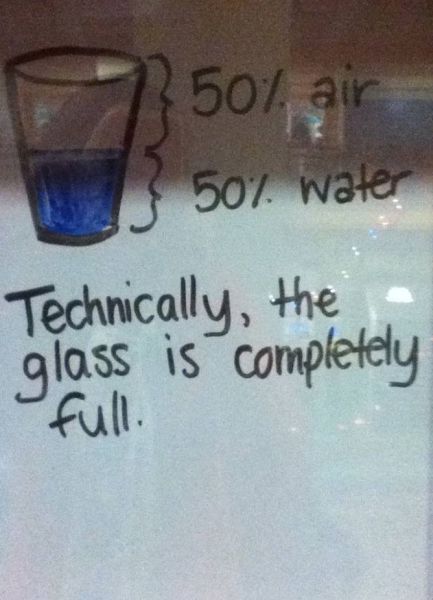 50% air
50% water
Technically, the
glass is completely
full.